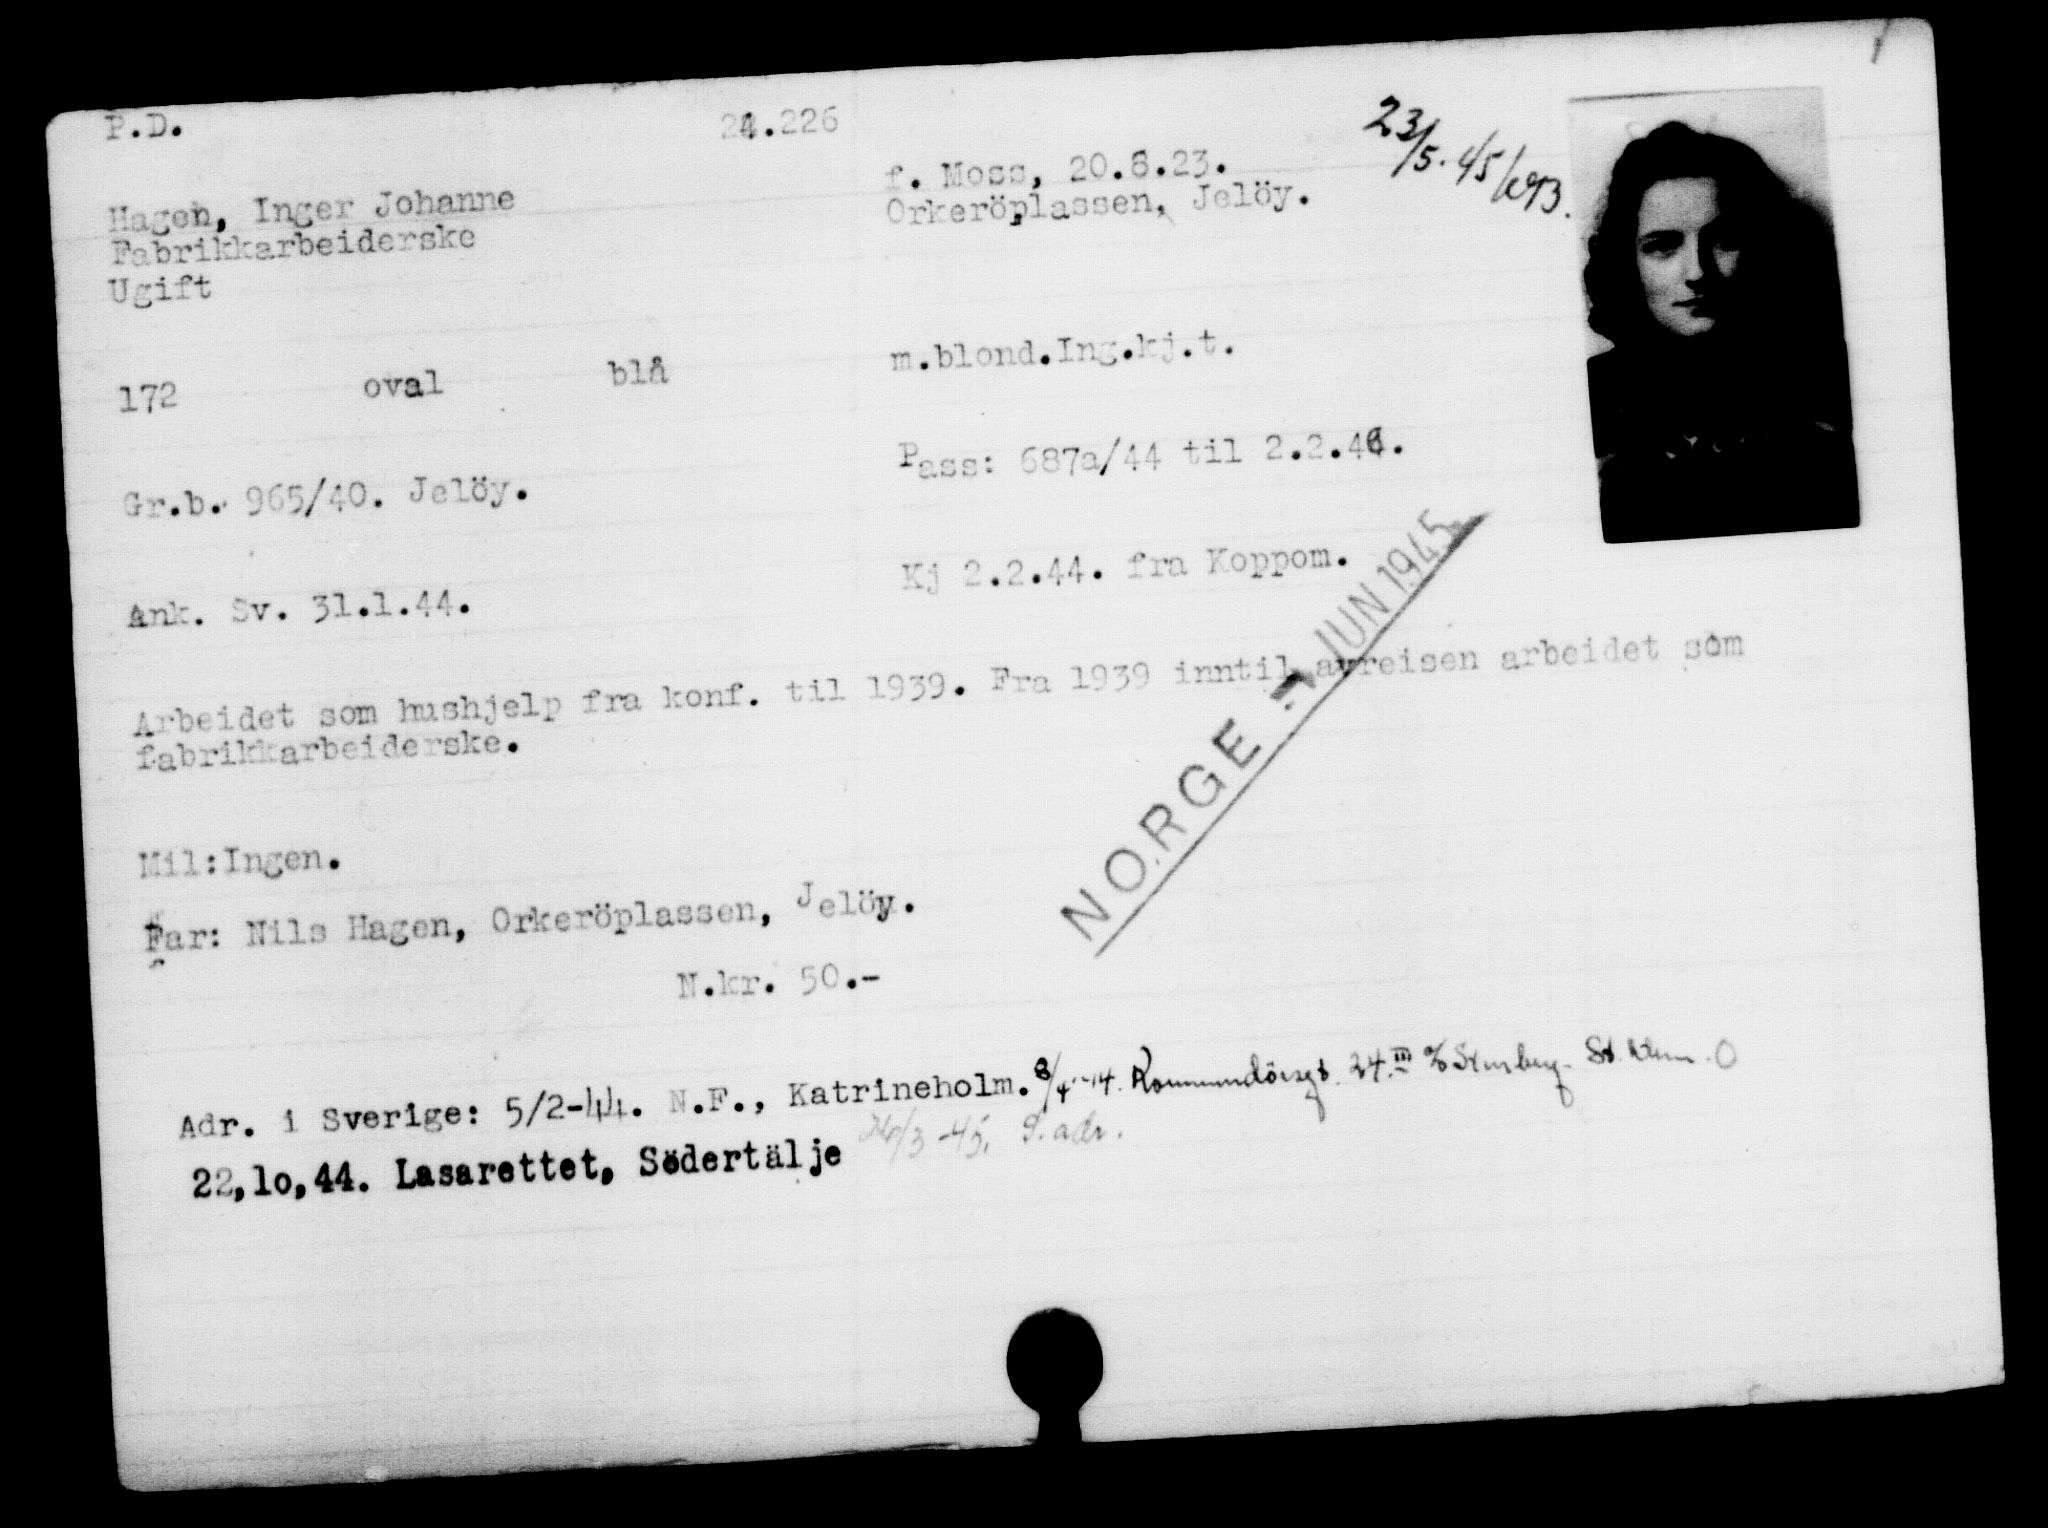 P.D.
24.226
23/5. 45/
f. Moss, 20.8.23.
Hagen, Inger Johanne
Orkeröplassen, Jelöy.
Fabrikkarbeiderske
Ugift
172 oval blå m.blond.Ing.kj.t.
Gr.b. 965/40. Jelöy. Pass: 687a/44 til
Ank. Sv. 31.1.44. Kj 2.2.44. fra Koppom.
NORGE 7 JUN 1945
Arbeidet som hushjelp fra konf. til 1939. Fra 1939 inntil avreisen arbeidet som
fabrikkarbeiderske.
Mil:Ingen.
Far: Nils Hagen, Orkeröplassen, Jelöy.
N.kr. 50.-
Adr. i Sverige: 5/2-44. N.F., Katrineholm. 8/4-44. 24.III
22,lo,44. Lasarettet, Södertälje 26/3-45. S. adr.